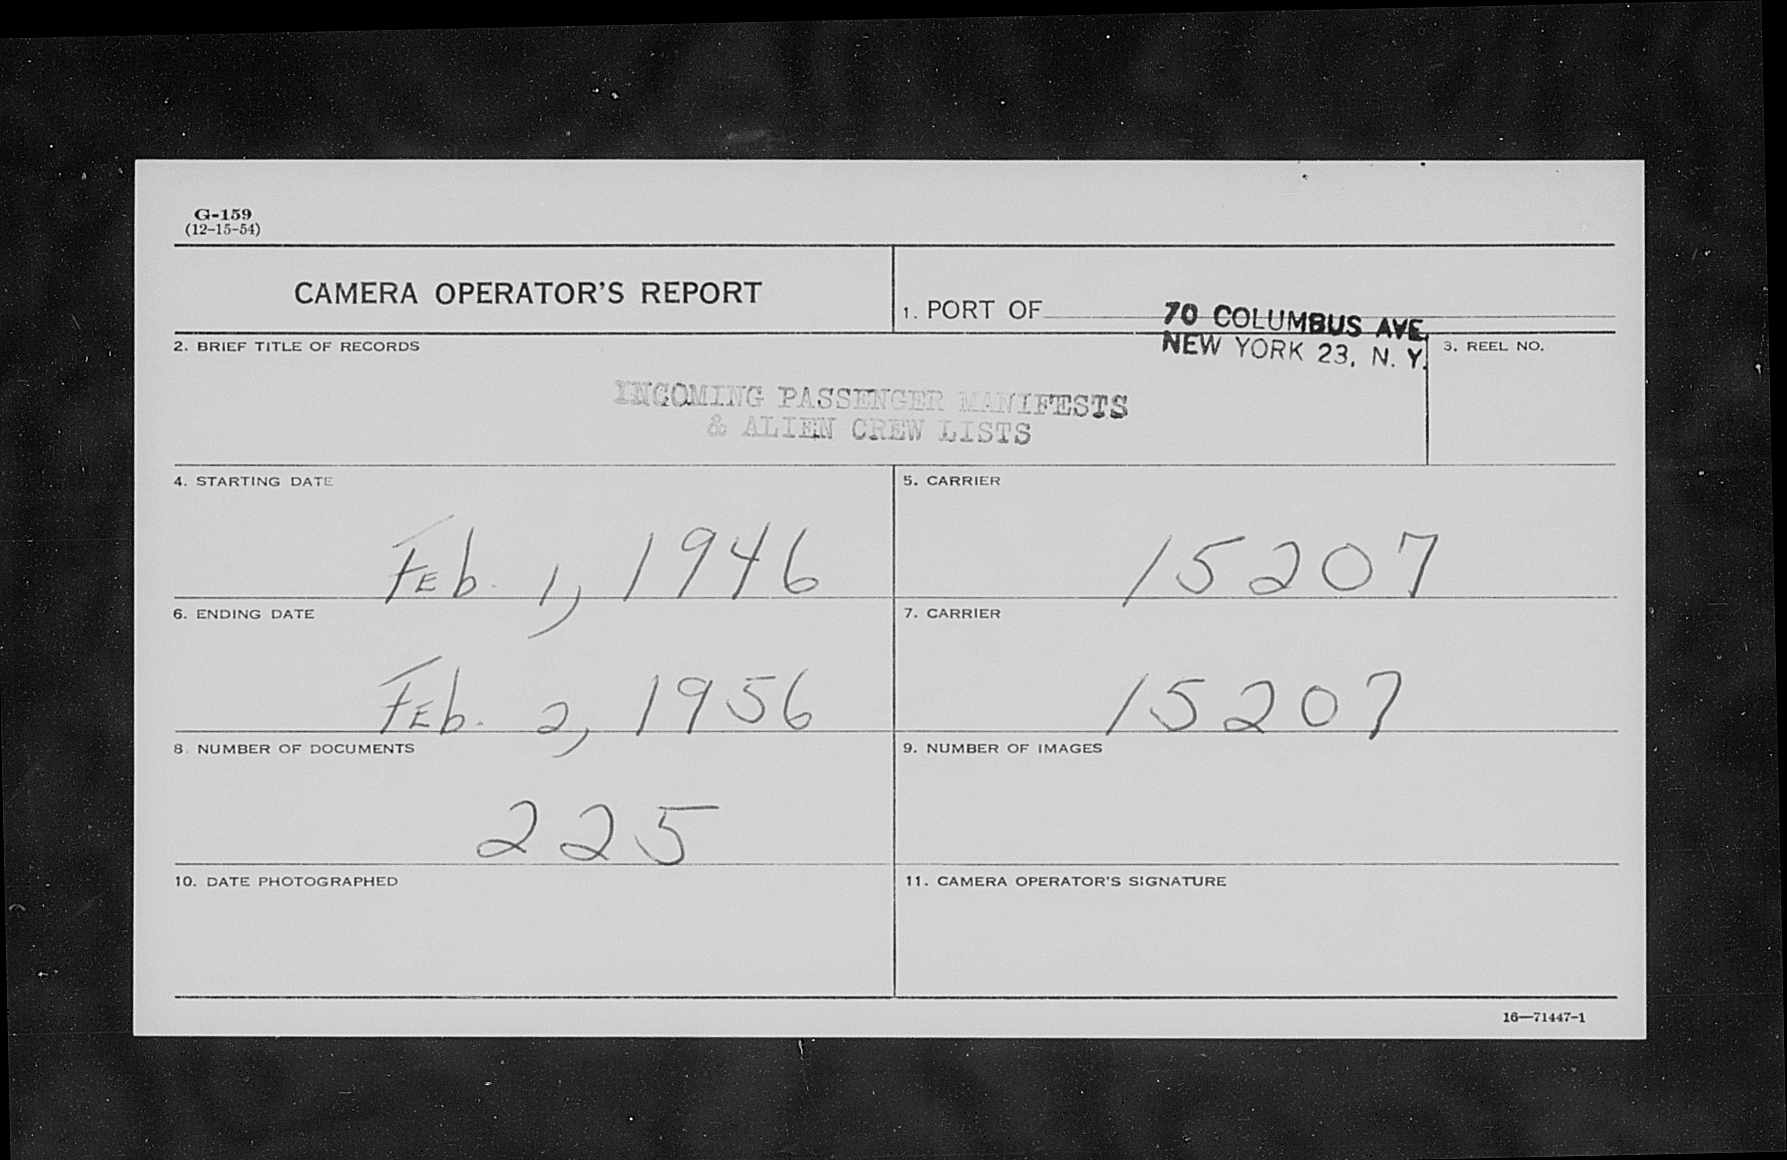 G-159
(12-15-54)
CAMERA OPERATOR'S REPORT
1. PORT OF
70 COLUMBUS AVE.
NEW YORK 23, N. Y.
2. BRIEF TITLE OF RECORDS
3. REEL NO.
INCOMING PASSENGER MANIFESTS
& ALIEN CREW LISTS
4. STARTING DATE
Feb. 1, 1946
5. CARRIER
15207
6. ENDING DATE
Feb. 2, 1956
7. CARRIER
15207
8. NUMBER OF DOCUMENTS
225
9. NUMBER OF IMAGES
10. DATE PHOTOGRAPHED
11. CAMERA OPERATOR'S SIGNATURE
16—71447-1